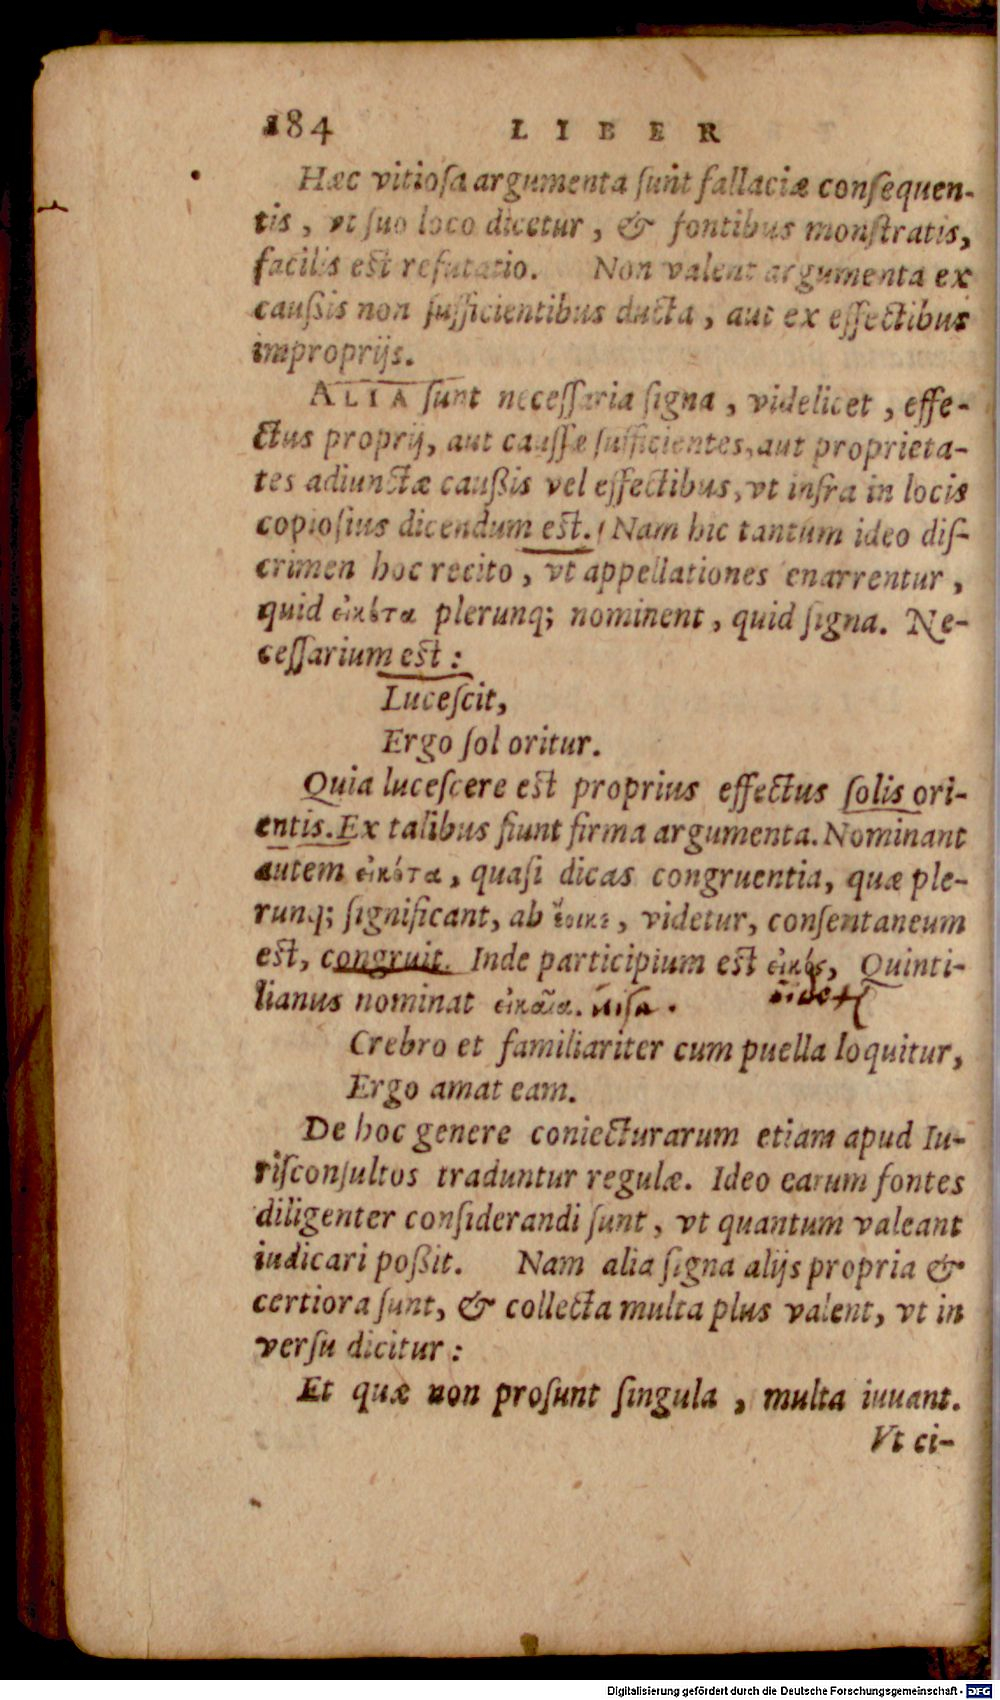 184 LIBER
Hæc vitiosa argumenta sunt fallaciæ consequen-
tis, vt suo loco dicetur, & fontibus monstratis,
facilis est refutatio. Non valent argumenta ex
caußis non sufficientibus ducta, aut ex effectibus
improprijs.
ALIA sunt necessaria signa, videlicet, effe-
ctus proprij, aut caussæ sufficientes, aut proprieta-
tes adiunctæ caußis vel effectibus, vt infra in locis
copiosius dicendum est. Nam hic tantum ideo dis-
crimen hoc recito, vt appellationes enarrentur,
quid εἰκότα plerunq; nominent, quid signa. Ne-
cessarium est:
Lucescit,
Ergo sol oritur.
Quia lucescere est proprius effectus solis ori-
entis. Ex talibus fiunt firma argumenta. Nominant
autem εἰκότα, quasi dicas congruentia, quæ ple-
runq; significant, ab ἔοικε, videtur, consentaneum
est, congruit. Inde participium est εἰκός, Quinti-
lianus nominat
Crebro et familiariter cum puella loquitur,
Ergo amat eam.
De hoc genere coniecturarum etiam apud Iu-
risconsultos traduntur regulæ. Ideo earum fontes
diligenter considerandi sunt, vt quantum valeant
iudicari poßit. Nam alia signa alijs propria &
certiora sunt, & collecta multa plus valent, vt in
versu dicitur:
Et quæ non prosunt singula, multa iuuant.
Vt ci-
Digitalisierung gefördert durch die Deutsche Forschungsgemeinschaft - DFG